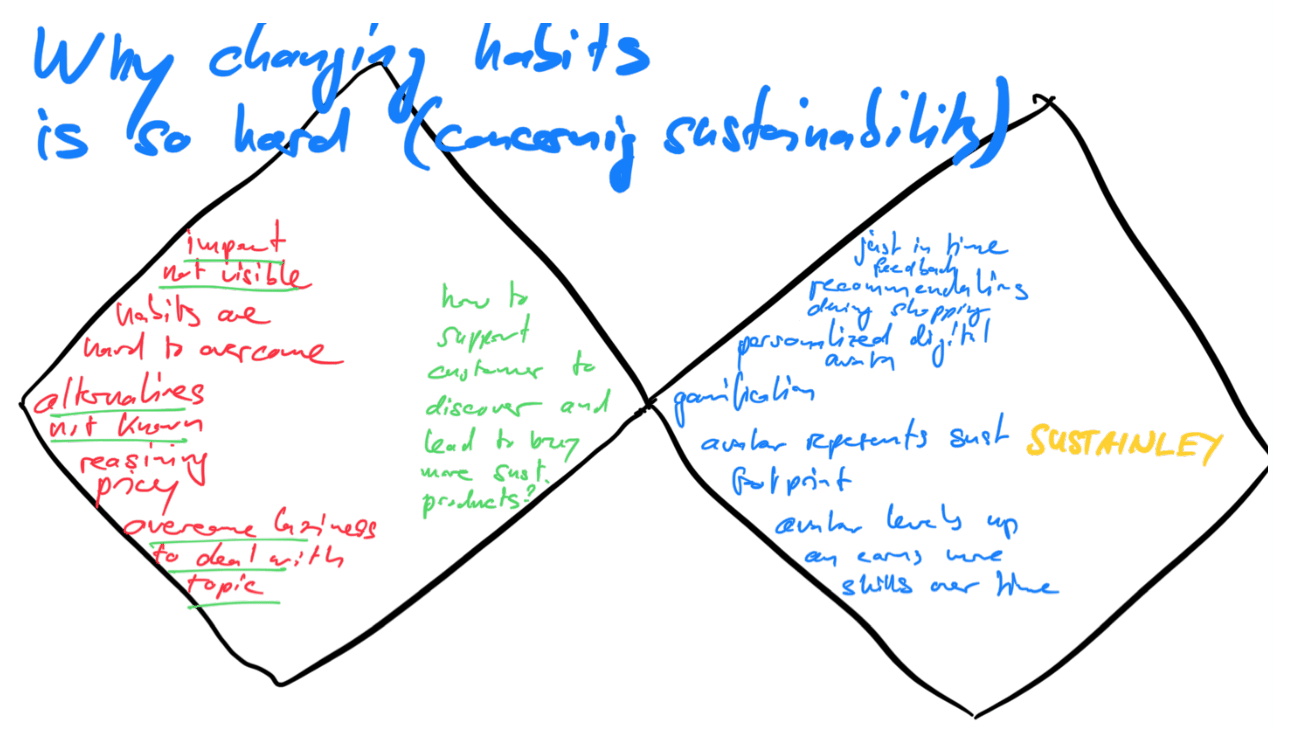 Why changing habits
is so hard (concernig sustainability)
impact
not visible
habits are
hard to overcome
alternatives
not known
reasining
pricy
overcome laziness
to deal with
topic
how to
support
customer to
discover and
lead to buy
more sust.
products?
just in time
feedback
recommendations
during shopping
personalized digital
avatar
gamification
avatar represents sust
footprint
SUSTAINLEY
avatar levels up
earns more
skills over time